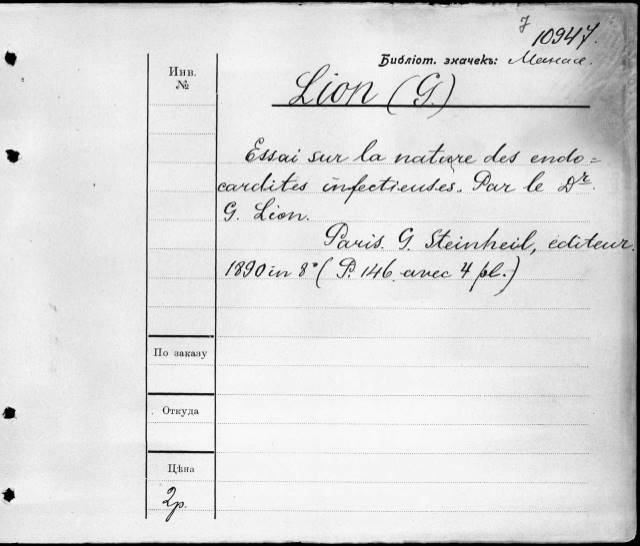 J 10947.
Библіот. значекъ: Манасе.
Инв.
№
Lion (G.)
Essai sur la nature des endo=
cardites infectieuses. Par le Dr.
G. Lion.
Paris. G. Steinheil, éditeur.
1890 in 8° (P. 146 avec 4 pl.)
По заказу
Откуда
Цѣна
2р.